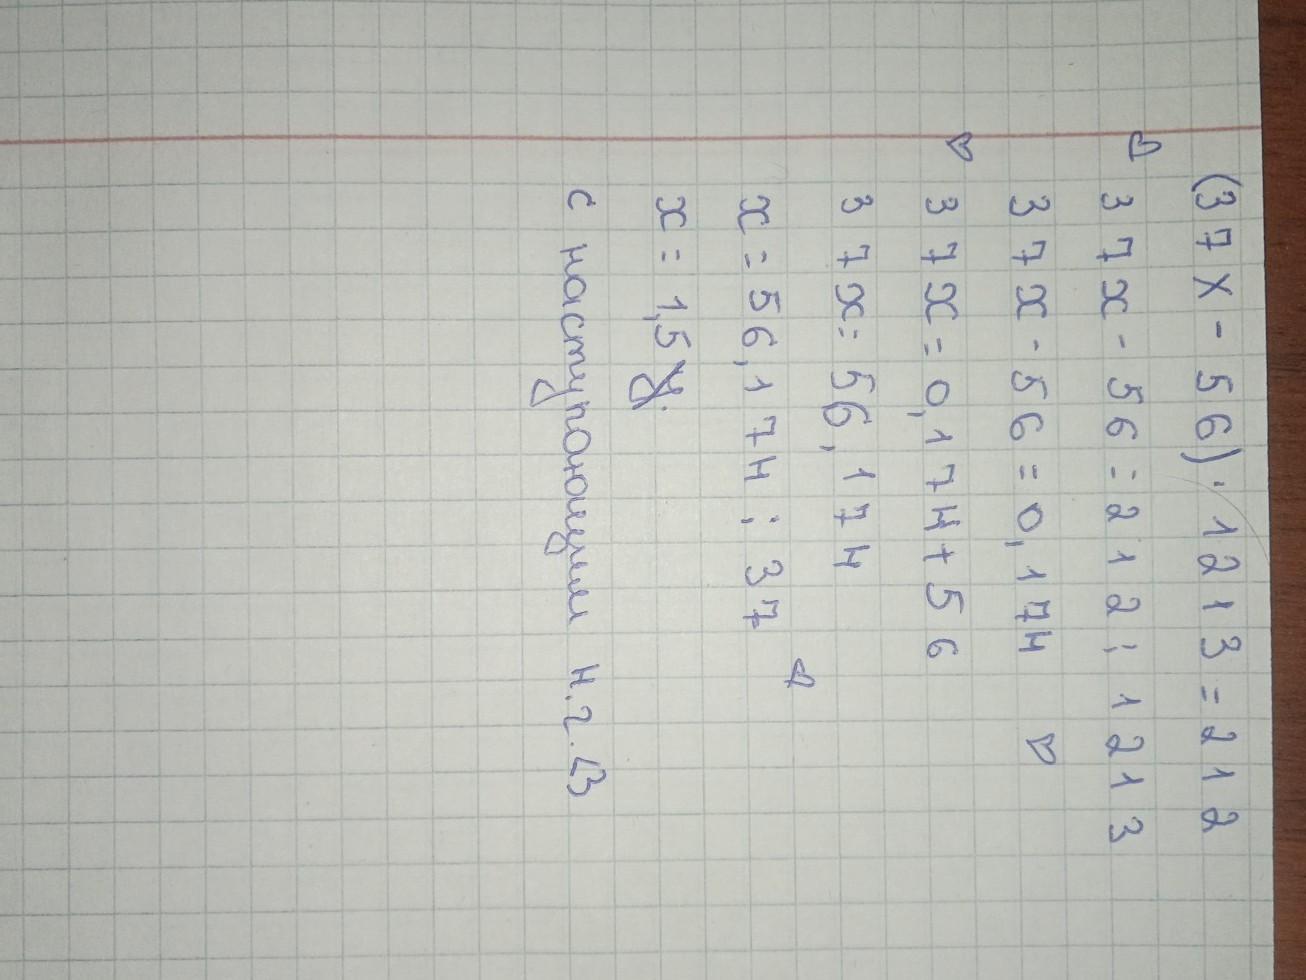 (37x-56)·1213=212
37x-56=212:1213
37x-56=0,174
37x=0,174+56
37x=56,174
x=56,174:37
x=1,5
с наступающим н.г.